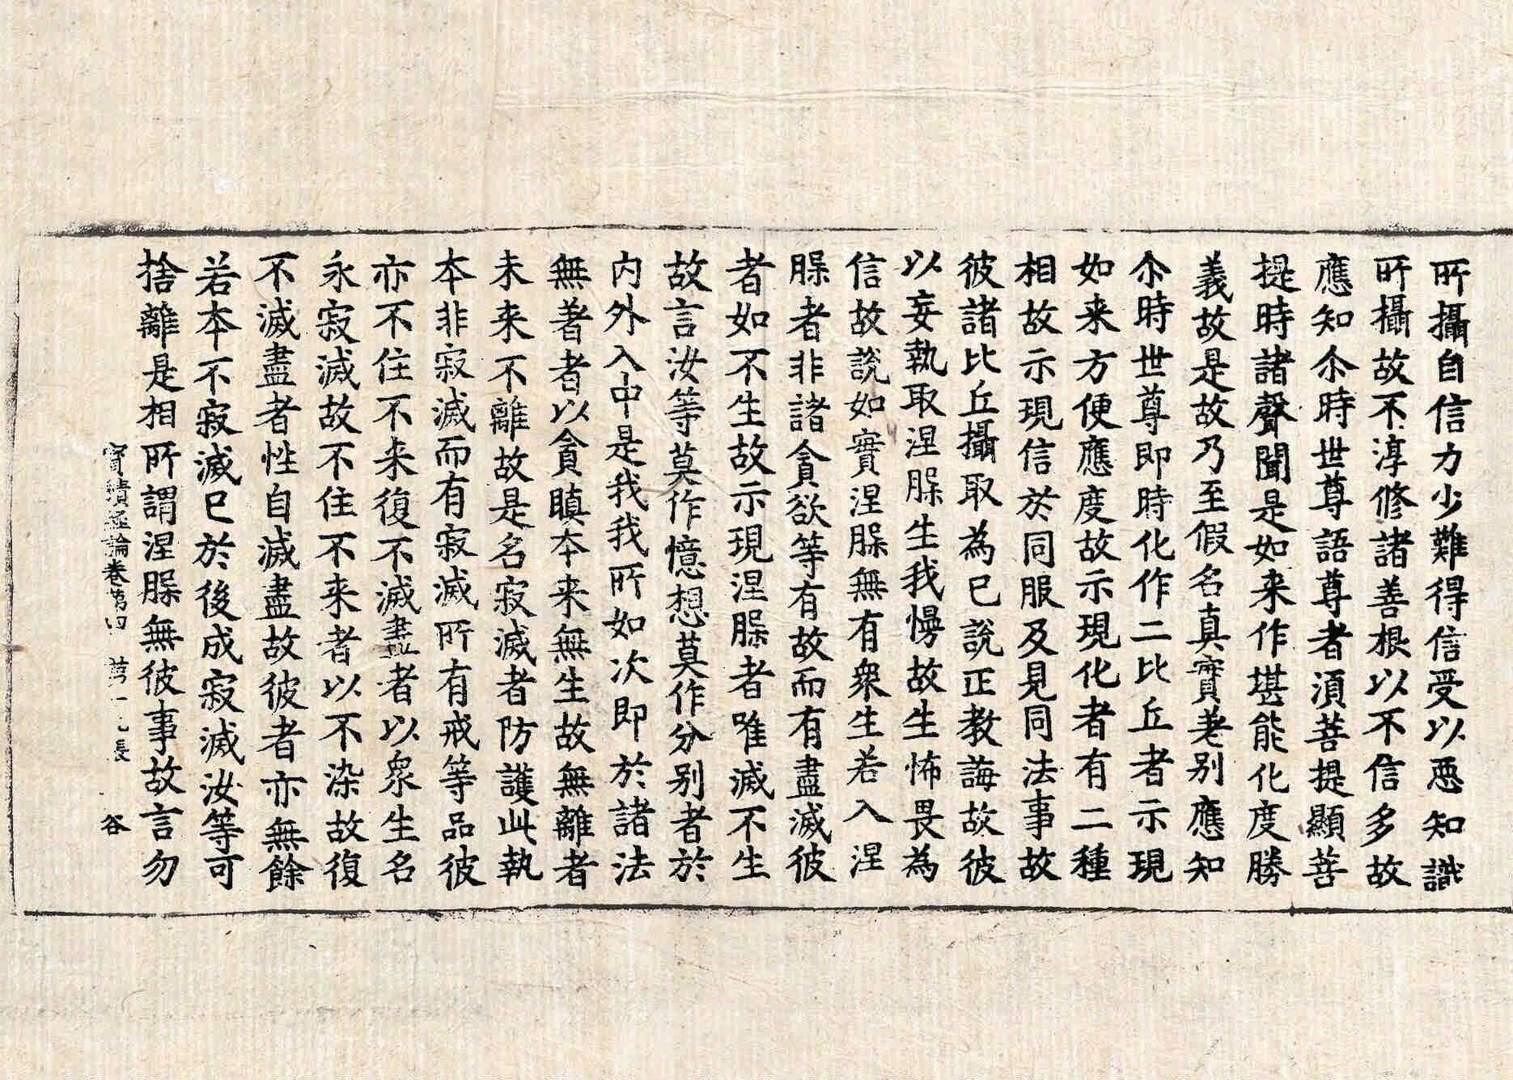 所攝自信力少難得信受以惡知識
所攝故不淳修諸善根以不信多故
應知尒時世尊語尊者湏菩提顯菩
提時諸聲聞是如来作堪能化度勝
義故是故乃至假名真實差别應知
尒時世尊即時化作二比丘者示現
如来方便應度故示現化者有二種
相故示現信於同服及見同法事故
彼諸比丘攝取為已說正教誨故彼
以妄執取涅槃生我慢故生怖畏為
信故說如實涅槃無有衆生若入涅
槃者非諸貪欲等有故而有盡滅彼
者如不生故示現涅槃者唯滅不生
故言汝等莫作憶想莫作分别者於
内外入中是我我所如次即於諸法
無著者以貪瞋本来無生故無離者
未来不離故是名寂滅者防護此執
本非寂滅而有寂滅所有戒等品彼
亦不住不来復不滅盡者以衆生名
永寂滅故不住不来者以不染故復
不滅盡者性自滅盡故彼者亦無餘
若本不寂滅已於後成寂滅汝等可
捨離是相所謂涅槃無彼事故言勿
寳積經論卷苐四 苐十九長 谷